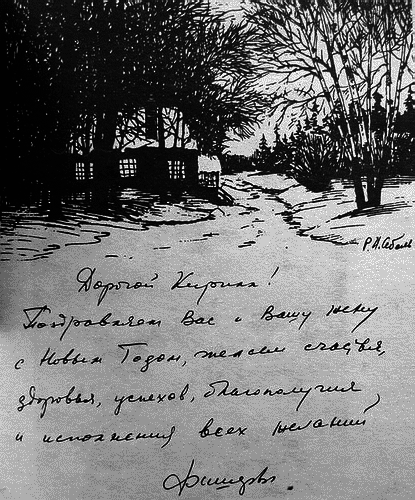 Р. И. Абель
Дорогой Кирилл!
Поздравляем Вас и Вашу жену
с Новым Годом, желаем счастья,
здоровья, успехов, благополучия
и исполнения всех желаний,